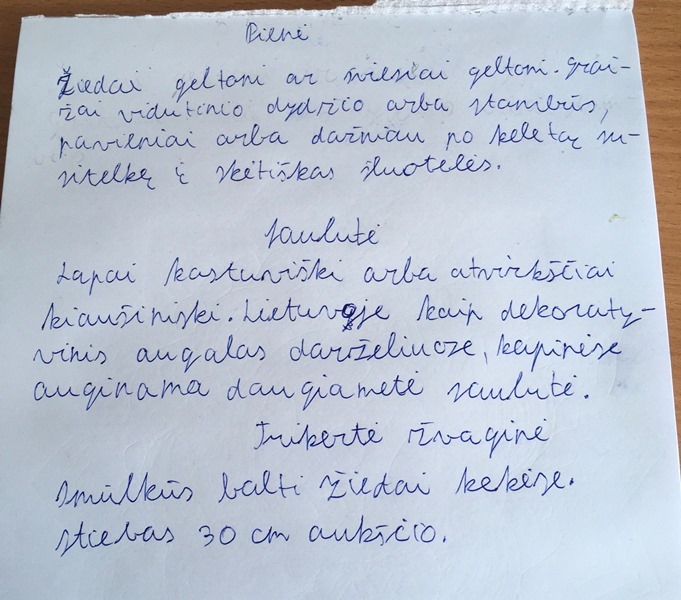 Pienė
Žiedai geltoni ar šviesiai geltoni. Grai-
žai vidutinio dydžio arba stambūs,
pavieniai arba dažniau po keletą su-
sitelkę į skėtiškas šluoteles.
Saulutė
Lapai kastuviški arba atvirkščiai
kiaušiniški. Lietuvoje kaip dekoraty-
vinis augalas darželiuose, kapinėse
auginama daugiametė saulutė.
Trikertė žvaginė
Smulkūs balti žiedai kekėse.
Stiebas 30 cm aukščio.